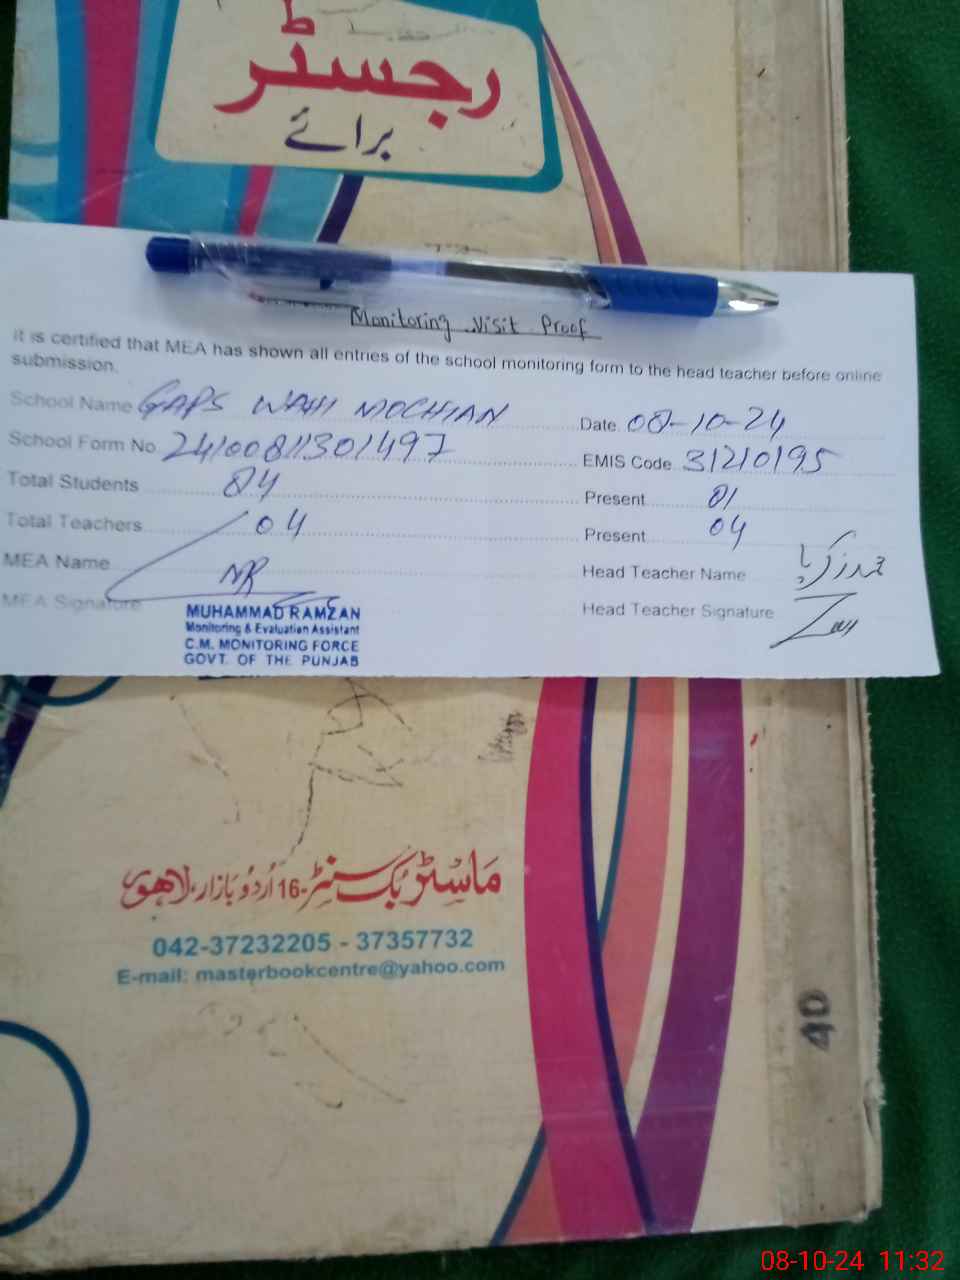 رجسٹر
برائے
Monitoring Visit Proof
It is certified that MEA has shown all entries of the school monitoring form to the head teacher before online
submission.
School Name GAPS WAHI MOCHIAN Date 08-10-24
School Form No. 24100811301497 EMIS Code 31210195
Total Students 84 Present 81
Total Teachers 04 Present 04
MEA Name Head Teacher Name محمد زکریا
MEA Signature Head Teacher Signature
MUHAMMAD RAMZAN
Monitoring & Evaluation Assistant
C.M. MONITORING FORCE
GOVT. OF THE PUNJAB
ماسٹر بک سنٹر-16 اُردُو بازار، لاہور
042-37232205 - 37357732
E-mail: masterbookcentre@yahoo.com
40
08-10-24 11:32